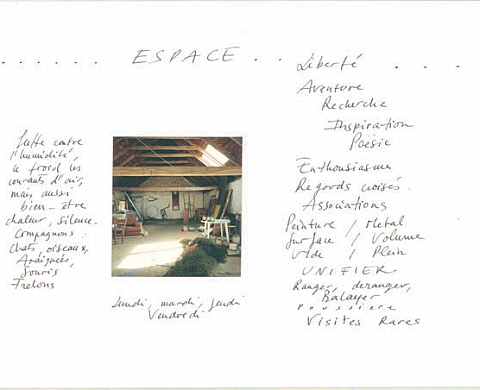 ...... ESPACE .. Liberté ...
Aventure
Recherche
Inspiration
Poésie
Enthousiasme
Regards croisés.
Associations
Peinture / Metal
Surface / Volume
Vide / Plein
UNIFIER
Ranger, deranger,
Balayer
Poussiere
Visites Rares
Lutte contre
l'humidité,
le froid les
courants d'air,
mais aussi
bien-être
chaleur, silence-
Compagnons:
Chats, oiseaux,
Souris
Frelons
Lundi, mardi, jeudi
Vendredi